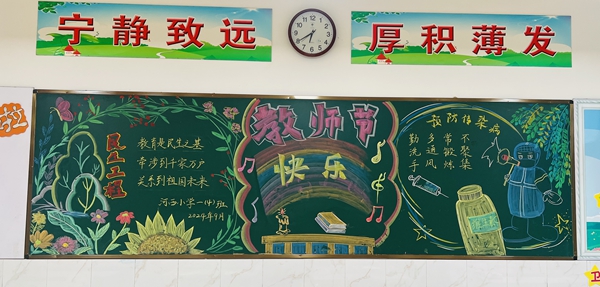 宁静致远
厚积薄发
民生工程
教育是民生之基
牵涉到千家万户
关系到祖国未来
河西小学一(4)班
2024年9月
教师节
快乐
预防传染病
勤洗手
多通风
常锻炼
不聚集
卫